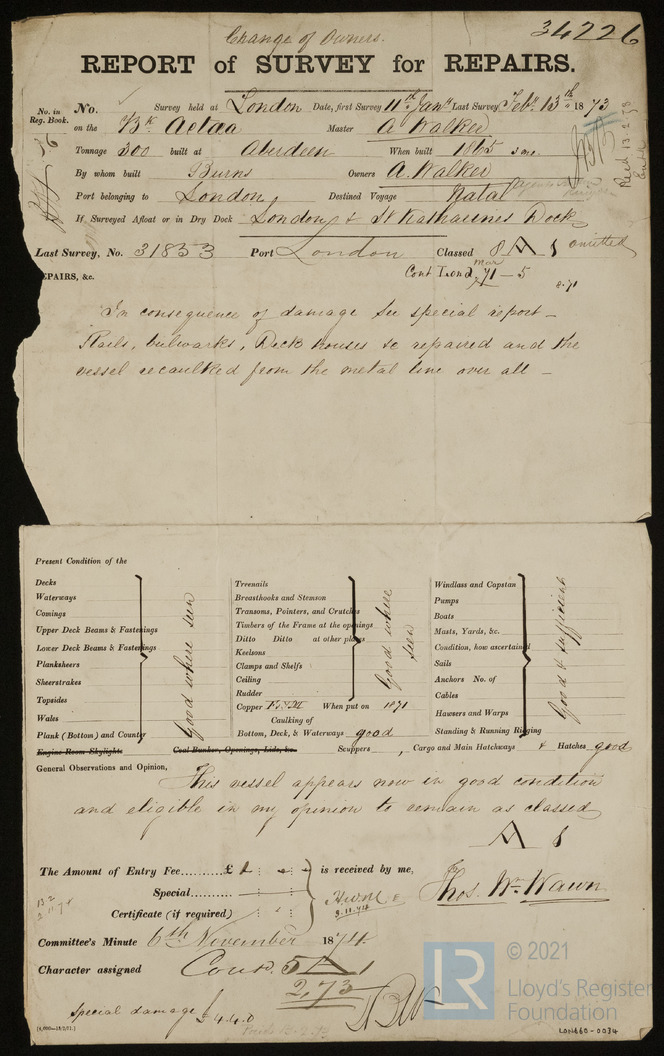 Change of Owners.
34226
REPORT of SURVEY for REPAIRS.
No. in Reg. Book.
No. Survey held at London Date, first Survey 11th Jany Last Survey Feby 13th 1873
on the Bk Actaea Master A Walker
Tonnage 300 built at Aberdeen When built 1865
By whom built Burns Owners A. Walker
Port belonging to London Destined Voyage Natal
If Surveyed Afloat or in Dry Dock London & St Katharines Dock
Recd 13.2.73
Last Survey, No. 31853 Port London Classed 8 A 1 omitted
Cont Lond Mar 71 - 5
8.71
EPAIRS, &c.
In consequence of damage see special report -
Rails, bulwarks, Deck houses &c repaired and the
vessel recaulked from the metal line over all -
Present Condition of the
Decks
Waterways
Comings
Upper Deck Beams & Fastenings
Lower Deck Beams & Fastenings
Planksheers
Sheerstrakes
Topsides
Wales
Plank (Bottom) and Counter
Good where seen
Engine Room Skylights
Coal Bunker, Openings, Lids, &c.
Treenails
Breasthooks and Stemson
Transoms, Pointers, and Crutches
Timbers of the Frame at the openings
Ditto Ditto at other places
Keelsons
Clamps and Shelfs
Ceiling
Rudder
Good where seen
Copper When put on 1871
Caulking of
Bottom, Deck, & Waterways good
Windlass and Capstan
Pumps
Boats
Masts, Yards, &c.
Condition, how ascertained
Sails
Anchors No. of
Cables
Hawsers and Warps
Standing & Running Rigging
Good & sufficient
Scuppers , Cargo and Main Hatchways & Hatches good
General Observations and Opinion,
This vessel appears now in good condition
and eligible in my opinion to remain as classed
A 1
The Amount of Entry Fee £ 1 : - : - is received by me,
Special
Certificate (if required)
Thos. Wm. Wawn
Committee's Minute 6th November 1874
Character assigned Cont. 5 A 1
2,73
Special damage £4.4.0
© 2021
LR
Lloyd's Register
Foundation
LON660-0034